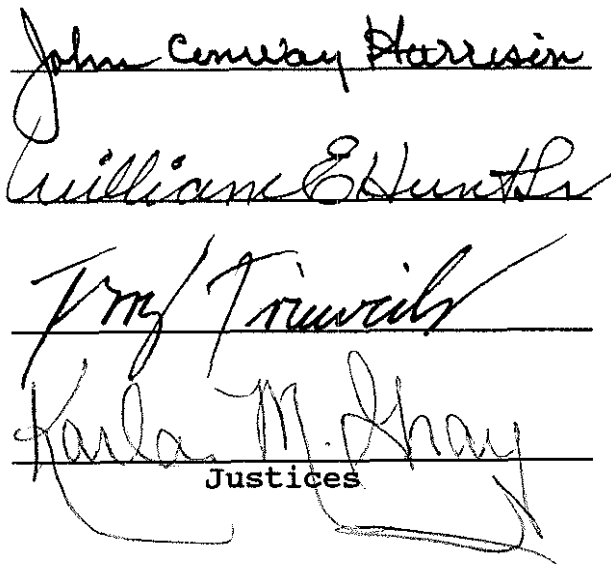 John Conway Harrison
William E Hunter
Terry Trieweiler
Karla M. Gray
Justices